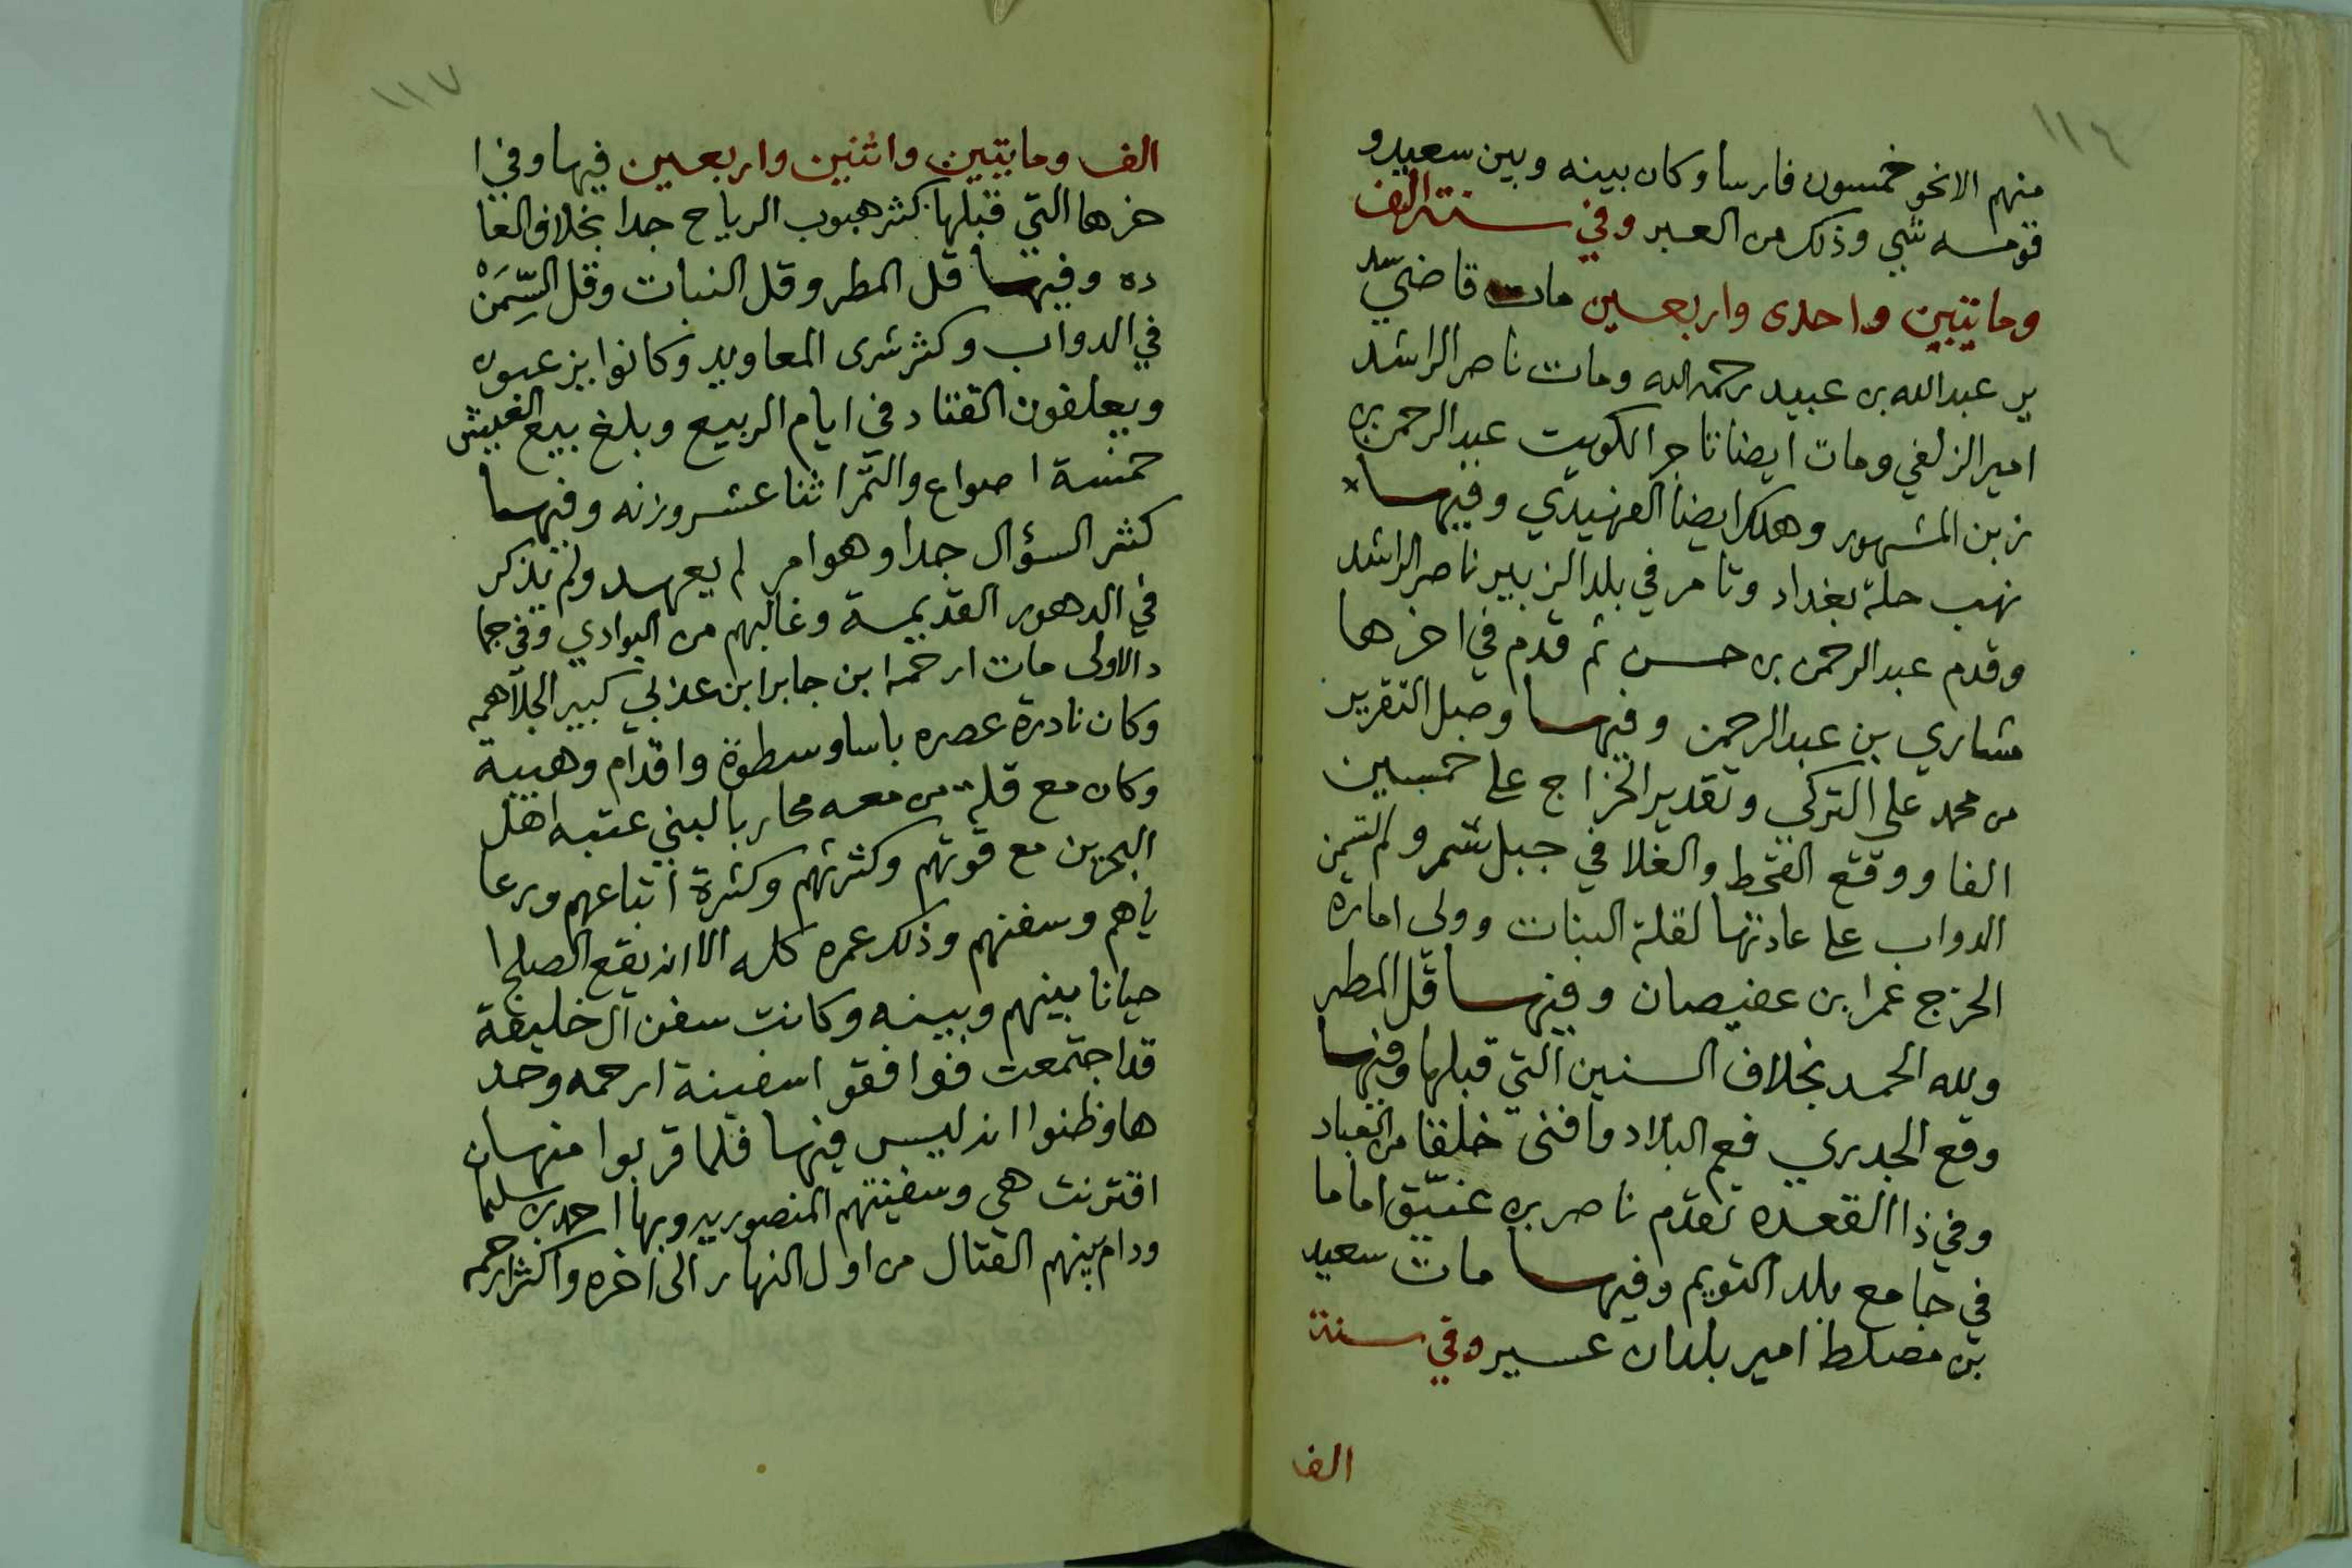 ١١٦
منهم الانحو خمسون فارسا وكان بينه وبين سعيد و
قومسه شي وذلك من العبر وفي سنة الف
ومايتين واحدى واربعين مات قاضي سد
ير عبدالله بن عبيد رحمه الله ومات ناصر الراشد
امير الزلفي ومات ايضا تاجر الكويت عبدالرحمن بن
زبن المشهور وهلك ايضا الفهيدي وفيها
نهب حلة بغداد وتامر في بلد الزبير ناصر الراشد
وقدم عبدالرحمن بن حسن ثم قدم في اخرها
مشاري بن عبدالرحمن وفيها وصل التقرير
من محمد علي التركي وتقدير الخراج على خمسين
الفا ووقع القحط والغلا في جبل شمر ولم تسمن
الدواب على عادتها لقلة النبات وولي امارة
الخرج عمر ابن عفيصان وفيها قل المطر
ولله الحمد بخلاف السنين التي قبلها وفيها
وقع الجدري فعم البلاد وافنى خلقا من العباد
وفي ذا القعده تقدم ناصر بن عتيق اماما
في جامع بلد التويم وفيها مات سعيد
بن مصلط امير بلدان عسير وفي سنة
الف
١١٧
الف ومايتين واثنين واربعين فيها وفي ا
خرها التي قبلها كثر هبوب الرياح جدا بخلاف العا
ده وفيها قل المطر وقل النبات وقل السِّمَنْ
في الدواب وكثر شرى المعاويد وكانوا يزعبون
ويعلفون القتاد في ايام الربيع وبلغ بيع العيش
خمسة اصواع والتمر اثنا عشر وزنه وفيها
كثر السؤال جدا وهو امر لم يعهد ولم يذكر
في الدهور القديمة وغالبهم من البوادي وفي جما
د الاولى مات ارحمه ابن جابر ابن عذبي كبير الجلاهمه
وكان نادرة عصره باسا وسطوة واقدام وهيبة
وكان مع قلة من معه محاربا لبني عتبه اهل
البحرين مع قوتهم وكثرتهم وكثرة اتباعهم ورعا
ياهم وسفنهم وذلك عمره كله الا انه يقع الصلح ا
حيانا بينهم وبينه وكانت سفن آل خليفة
قد اجتمعت فوافقو اسفينة ارحمه وحد
ها وظنوا انه ليس فيها فلما قربوا منها ان
اقترنت هي وسفينتهم المنصوريه وبها احمد بن سلما
ودام بينهم القتال من اول النهار الى اخره واكثر ارحمه